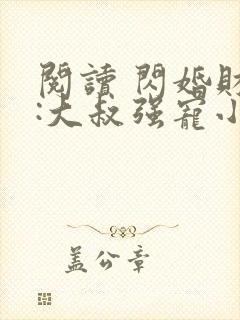 閱讀 閃婚財
:大叔强寵小
盖公章